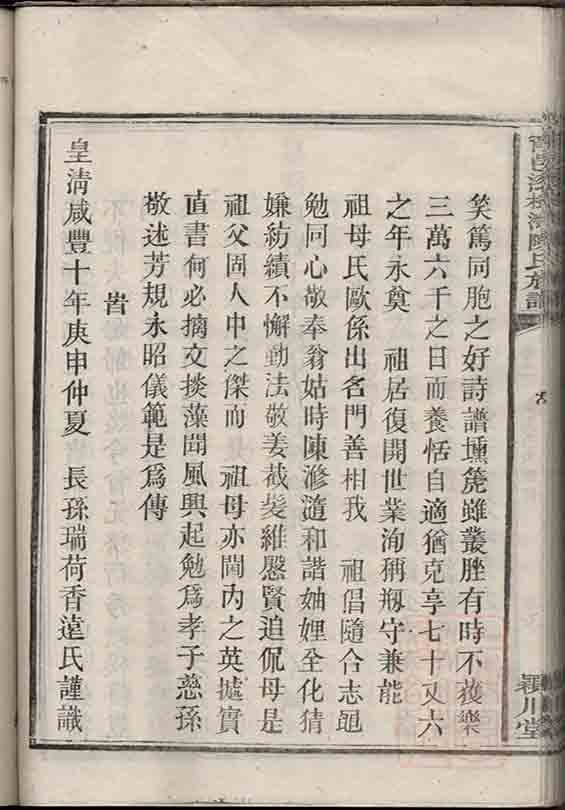 矣篤同胞之好詩譜壎箎雖叢脞有時不獲樂
三萬六千之日而養恬自適猶克享七十又六
之年永奠 祖居復開世業洵稱刱守兼能
祖母氏歐係出名門善相我 祖倡隨合志黽
勉同心敬奉翁姑時陳滫瀡和諧妯娌全化猜
嫌紡績不懈勤法敬姜截髮維慇賢追侃母是
祖父固人中之傑而 祖母亦閫內之英據實
直書何必摘文掞藻聞風興起勉爲孝子慈孫
敬述芳規永昭儀範是爲傳
旹
皇清咸豐十年庚申仲夏 長孫瑞荷香遠氏謹識
陳氏族譜
潁川堂